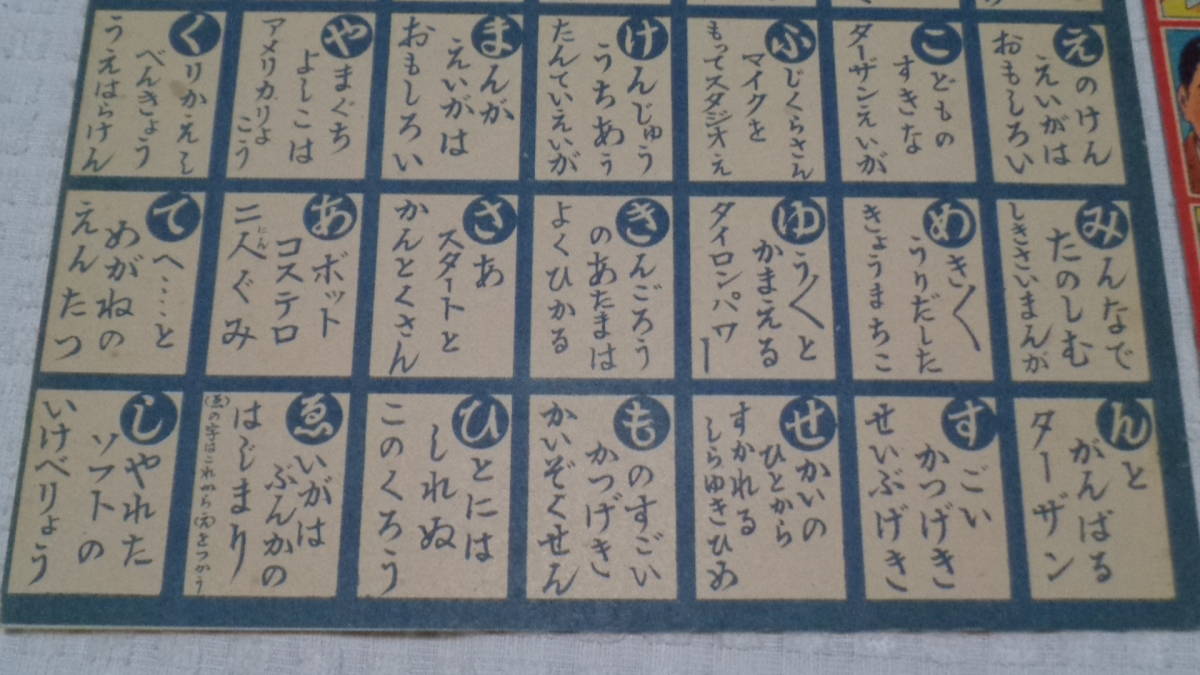 えのけん
えいがは
おもしろい
こどもの
すきな
ターザンえいが
ふじくらさん
マイクを
もってスタジオえ
けんじゅう
うちあう
たんていえいが
まんが
えいがは
おもしろい
やまぐち
よしこは
アメリカりよ
こう
くりかえし
べんきょう
うえはらけん
みんなで
たのしむ
しきさいまんが
めき〱
うりだした
きょうまちこ
ゆう〱と
かまえる
タイロンパワー
きんごろう
のあたまは
よくひかる
さあ
スタートと
かんとくさん
あボット
コステロ
二人ぐみ
にん
てへ……と
めがねの
えんたつ
んと
がんばる
ターザン
すごい
かつげき
せいぶげき
せかいの
ひとから
すかれる
しらゆきひめ
ものすごい
かつげき
かいぞくせん
ひとには
しれぬ
このくろう
ゑいがは
ぶんかの
はじまり
(ゑ)の字はこれから(え)をつかう
しやれた
ソフトの
いけべりょう